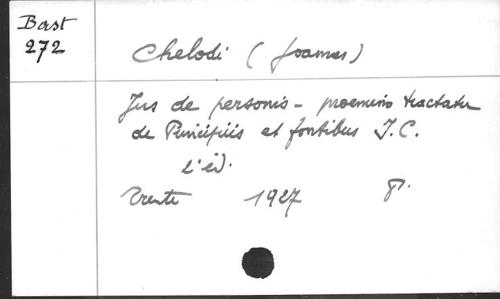 Bast
272
Chelodi (Joannes)
Jus de personis - proemino tractatu
de Principiis et fontibus J.C.
2'éd.
Trente 1927 8º.